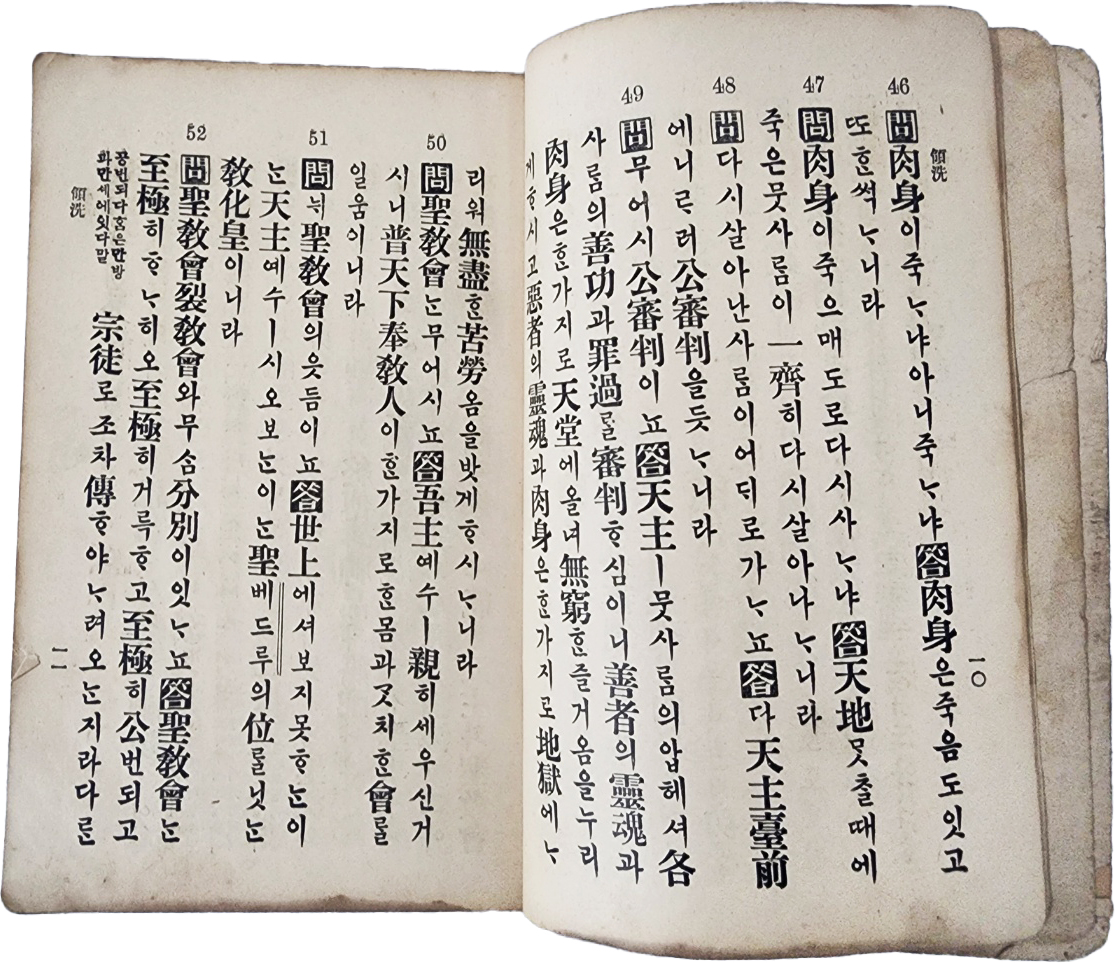 領洗
46 問肉身이죽ᄂᆞ냐아니죽ᄂᆞ냐答肉身은죽음도잇고
또ᄒᆞᆫ썩ᄂᆞ니라
47 問肉身이죽으매도로다시사ᄂᆞ냐答天地ᄆᆞᆺᄎᆞᆯ때에
죽은뭇사ᄅᆞᆷ이一齊히다시살아나ᄂᆞ니라
48 問다시살아난사ᄅᆞᆷ이어ᄃᆡ로가ᄂᆞ뇨答다天主臺前
에니ᄅᆞ러公審判을듯ᄂᆞ니라
49 問무어시公審判이뇨答天主ㅣ뭇사ᄅᆞᆷ의압헤셔各
사ᄅᆞᆷ의善功과罪過ᄅᆞᆯ審判ᄒᆞ심이니善者의靈魂과
肉身은ᄒᆞᆫ가지로天堂에올녀無窮ᄒᆞᆫ즐거옴을누리
게ᄒᆞ시고惡者의靈魂과肉身은ᄒᆞᆫ가지로地獄에ᄂᆞ
一〇
리워無盡ᄒᆞᆫ苦勞옴을밧게ᄒᆞ시ᄂᆞ니라
50 問聖敎會ᄂᆞᆫ무어시뇨答吾主예수ㅣ親히세우신거
시니普天下奉敎人이ᄒᆞᆫ가지로ᄒᆞᆫ몸과ᄀᆞᆺ치ᄒᆞᆫ會ᄅᆞᆯ
일움이니라
51 問뉘聖敎會의읏듬이뇨答世上에셔보지못ᄒᆞᄂᆞᆫ이
ᄂᆞᆫ天主예수ㅣ시오보ᄂᆞᆫ이ᄂᆞᆫ聖베드루의位ᄅᆞᆯ닛ᄂᆞᆫ
敎化皇이니라
52 問聖敎會裂敎會와무ᄉᆞᆷ分別이잇ᄂᆞ뇨答聖敎會ᄂᆞᆫ
至極히ᄒᆞᄂᆞ히오至極히거륵ᄒᆞ고至極히公번되고
공번되다홈은만방
화만세에잇다말
宗徒로조차傳ᄒᆞ야ᄂᆞ려오ᄂᆞᆫ지라다ᄅᆞᆫ
領洗
一一